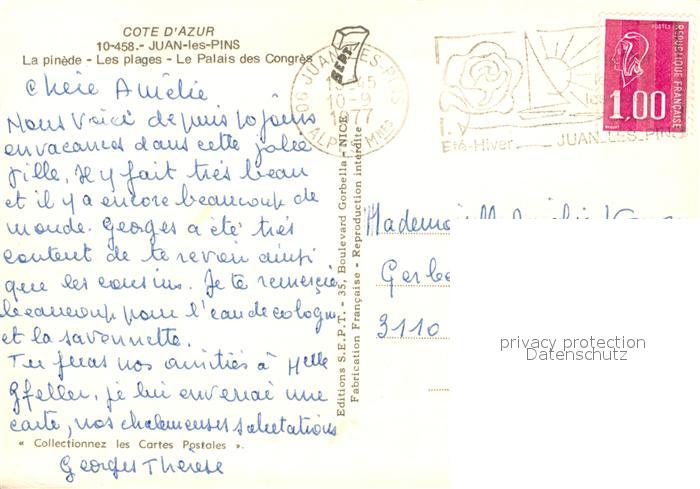 COTE D'AZUR
10-458.- JUAN-les-PINS
La pinède - Les plages - Le Palais des Congrès
Chère Amélie
Nous voici depuis 10 jours
en vacances dans cette jolie
ville, il y fait très beau
et il y a encore beaucoup de
monde. Georges a été très
content de te revoir ainsi
que les cousins. Je te remercie
beaucoup pour l'eau de cologne
et la savonnette.
Tu feras nos amitiés à Melle
Gfeller, je lui enverrai une
carte, nos chaleureuses salutations
« Collectionnez les Cartes Postales ».
Georges Thérèse
Editions S.E.P.T. - 35, Boulevard Gorbella - NICE
Fabrication Française - Reproduction interdite
SEPT
06 JUAN-LES-PINS
10-9
1977
ALPES MMES
Eté-Hiver
JUAN-LES-PINS
REPUBLIQUE FRANÇAISE
1,00
Mademoiselle
3110
privacy protection
Datenschutz